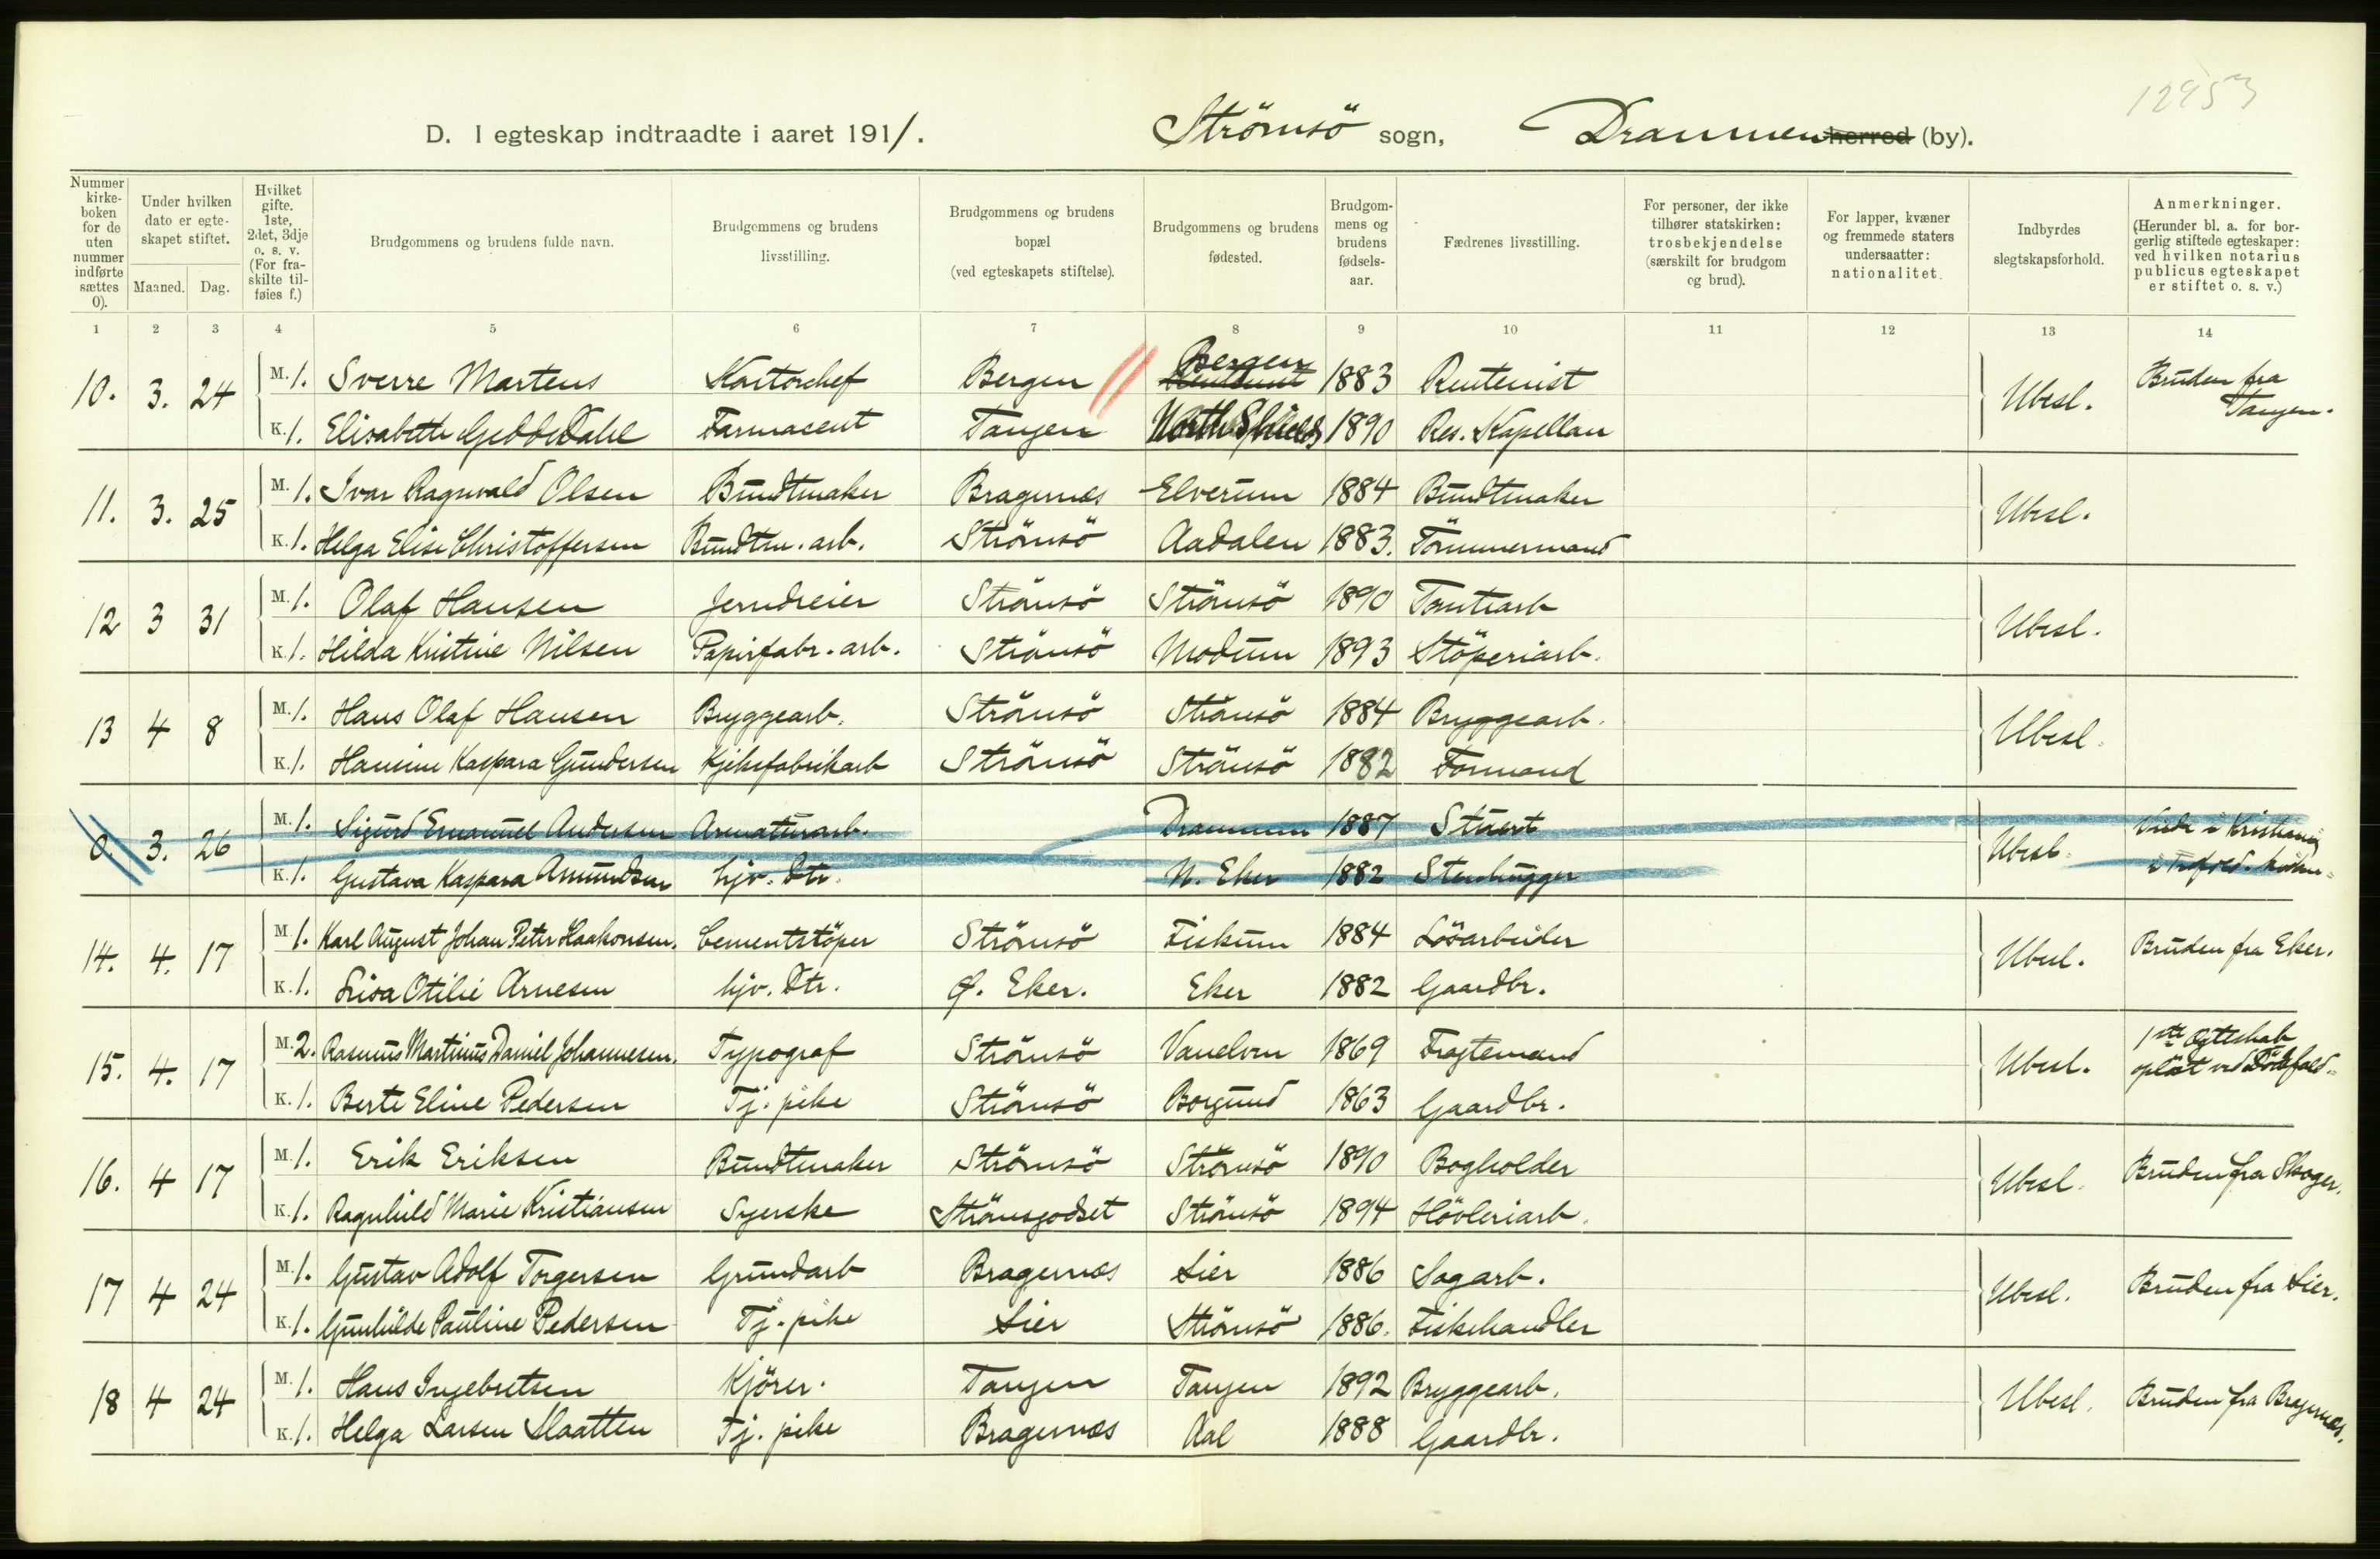 12953
D. I egteskap indtraadte i aaret 1911. Strömsö sogn, Drammen herred (by).
Nummer kirke-boken for de uten nummer indførte sættes 0).
Under hvilken dato er egte-skapet stiftet.
Maaned. Dag.
Hvilket gifte. 1ste, 2det, 3dje o. s. v. (For fra-skilte til-føies f.)
Brudgommens og brudens fulde navn.
Brudgommens og brudens livsstilling.
Brudgommens og brudens bopæl (ved egteskapets stiftelse).
Brudgommens og brudens fødested.
Brudgom-mens og brudens fødsels-aar.
Fædrenes livsstilling.
For personer, der ikke tilhører statskirken: trosbekjendelse (særskilt for brudgom og brud).
For lapper, kvæner og fremmede staters undersaatter: nationalitet.
Indbyrdes slegtskapsforhold.
Anmerkninger. (Herunder bl. a. for bor-gerlig stiftede egteskaper: ved hvilken notarius publicus egteskapet er stiftet o. s. v.)
1 2 3 4 5 6 7 8 9 10 11 12 13 14
10. 3. 24 M. 1. Sverre Martens Kontorchef Bergen Bergen 1883 Rentenist Ubesl. Bruden fra Tangen.
K. 1. Elisabeth Gedde Dahl Farmaceut Tangen North Shields 1890 Res. Kapellan
11. 3. 25 M. 1. Ivar Ragnvald Olsen Bundtmaker Bragernæs Elverum 1884 Bundtmaker Ubesl.
K. 1. Helga Elise Christoffersen Bundtm. arb. Strömsö Aadalen 1883. Tömmermand
12 3 31 M. 1. Olaf Hansen Jerndreier Strömsö Strömsö 1890 Tomtearb Ubesl.
K. 1. Hilda Kristine Nilsen Papirfabr. arb. Strömsö Modum 1893 Stöperiarb.
13 4 8 M. 1. Hans Olaf Hansen Bryggearb. Strömsö Strömsö 1884 Bryggearb. Ubesl.
K. 1. Hansine Kaspara Gundersen Kjeksfabrikarb Strömsö Strömsö 1882 Formand
0. 3. 26 M. 1. Sigurd Emanuel Andersen Armaturarb. Drammen 1887 Stuert Ubesl. Viede i Kristiania
K. 1. Gustava Kaspara Amundsen hjv. Dtr. N. Eker 1882 Stenhugger
14. 4. 17 M. 1. Karl August Johan Peter Haakonsen. Cementstöper Strömsö Fiskum 1884 Lösarbeider Ubesl. Bruden fra Eker.
K. 1. Lisa Otilie Arnesen hjv. Dtr. Ø. Eker. Eker 1882 Gaardbr.
15. 4. 17 M. 2. Rasmus Martinus Daniel Johannesen. Typograf Strömsö Vanelven 1869 Fragtemand Ubesl. 1ste Ægteskab oplöst ved Dödsfald.
K. 1. Berte Eline Pedersen Tj. pike Strömsö Borgund 1863 Gaardbr.
16. 4 17 M. 1. Erik Eriksen Bundtmaker Strömsö Strömsö 1890 Bogholder Ubesl. Bruden fra Skoger.
K. 1. Ragnhild Marie Kristiansen Syerske Strömsgodset Strömsö 1894 Hövleriarb.
17 4 24 M. 1. Gustav Adolf Torgersen Grundarb Bragernæs Lier 1886 Sagarb. Ubesl. Bruden fra Lier.
K. 1. Gunhilde Pauline Pedersen Tj. pike Lier Strömsö 1886. Fiskehandler
18 4 24 M. 1. Hans Ingebretsen Kjörer. Tangen Tangen 1892 Bryggearb. Ubesl. Bruden fra Bragernæs.
K. 1. Helga Larsen Slaatten Tj. pike Bragernæs Aal 1888 Gaardbr.